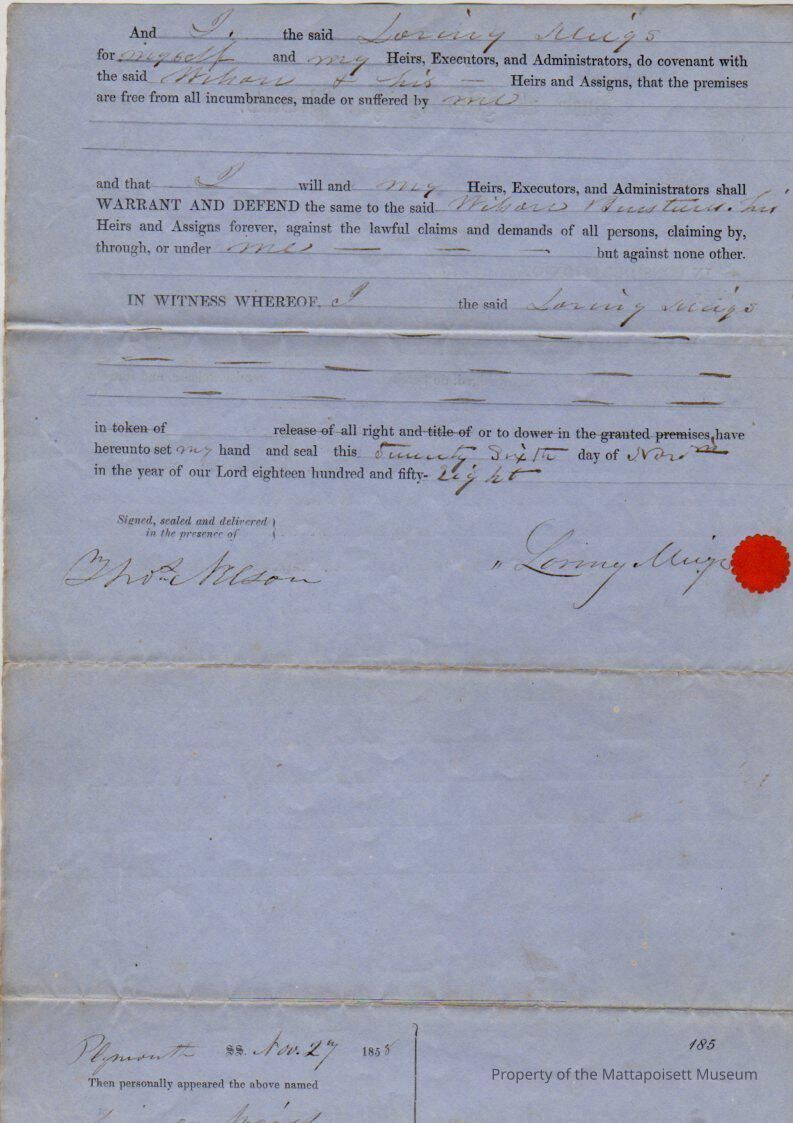 And I. the said Loring Meigs
for myself and my Heirs, Executors, and Administrators, do covenant with
the said Wilson & his — Heirs and Assigns, that the premises
are free from all incumbrances, made or suffered by me
and that I will and my Heirs, Executors, and Administrators shall
WARRANT AND DEFEND the same to the said Wilson Barstow. his
Heirs and Assigns forever, against the lawful claims and demands of all persons, claiming by,
through, or under me — — — but against none other.
IN WITNESS WHEREOF, I the said Loring Meigs
in token of release of all right and title of or to dower in the granted premises, have
hereunto set my hand and seal this Twenty Sixth day of Novm
in the year of our Lord eighteen hundred and fifty- Eight
Signed, sealed and delivered }
in the presence of
Thos. Nelson
Loring Meigs
Plymouth SS. Nov. 27 1858
185
Property of the Mattapoisett Museum
Then personally appeared the above named